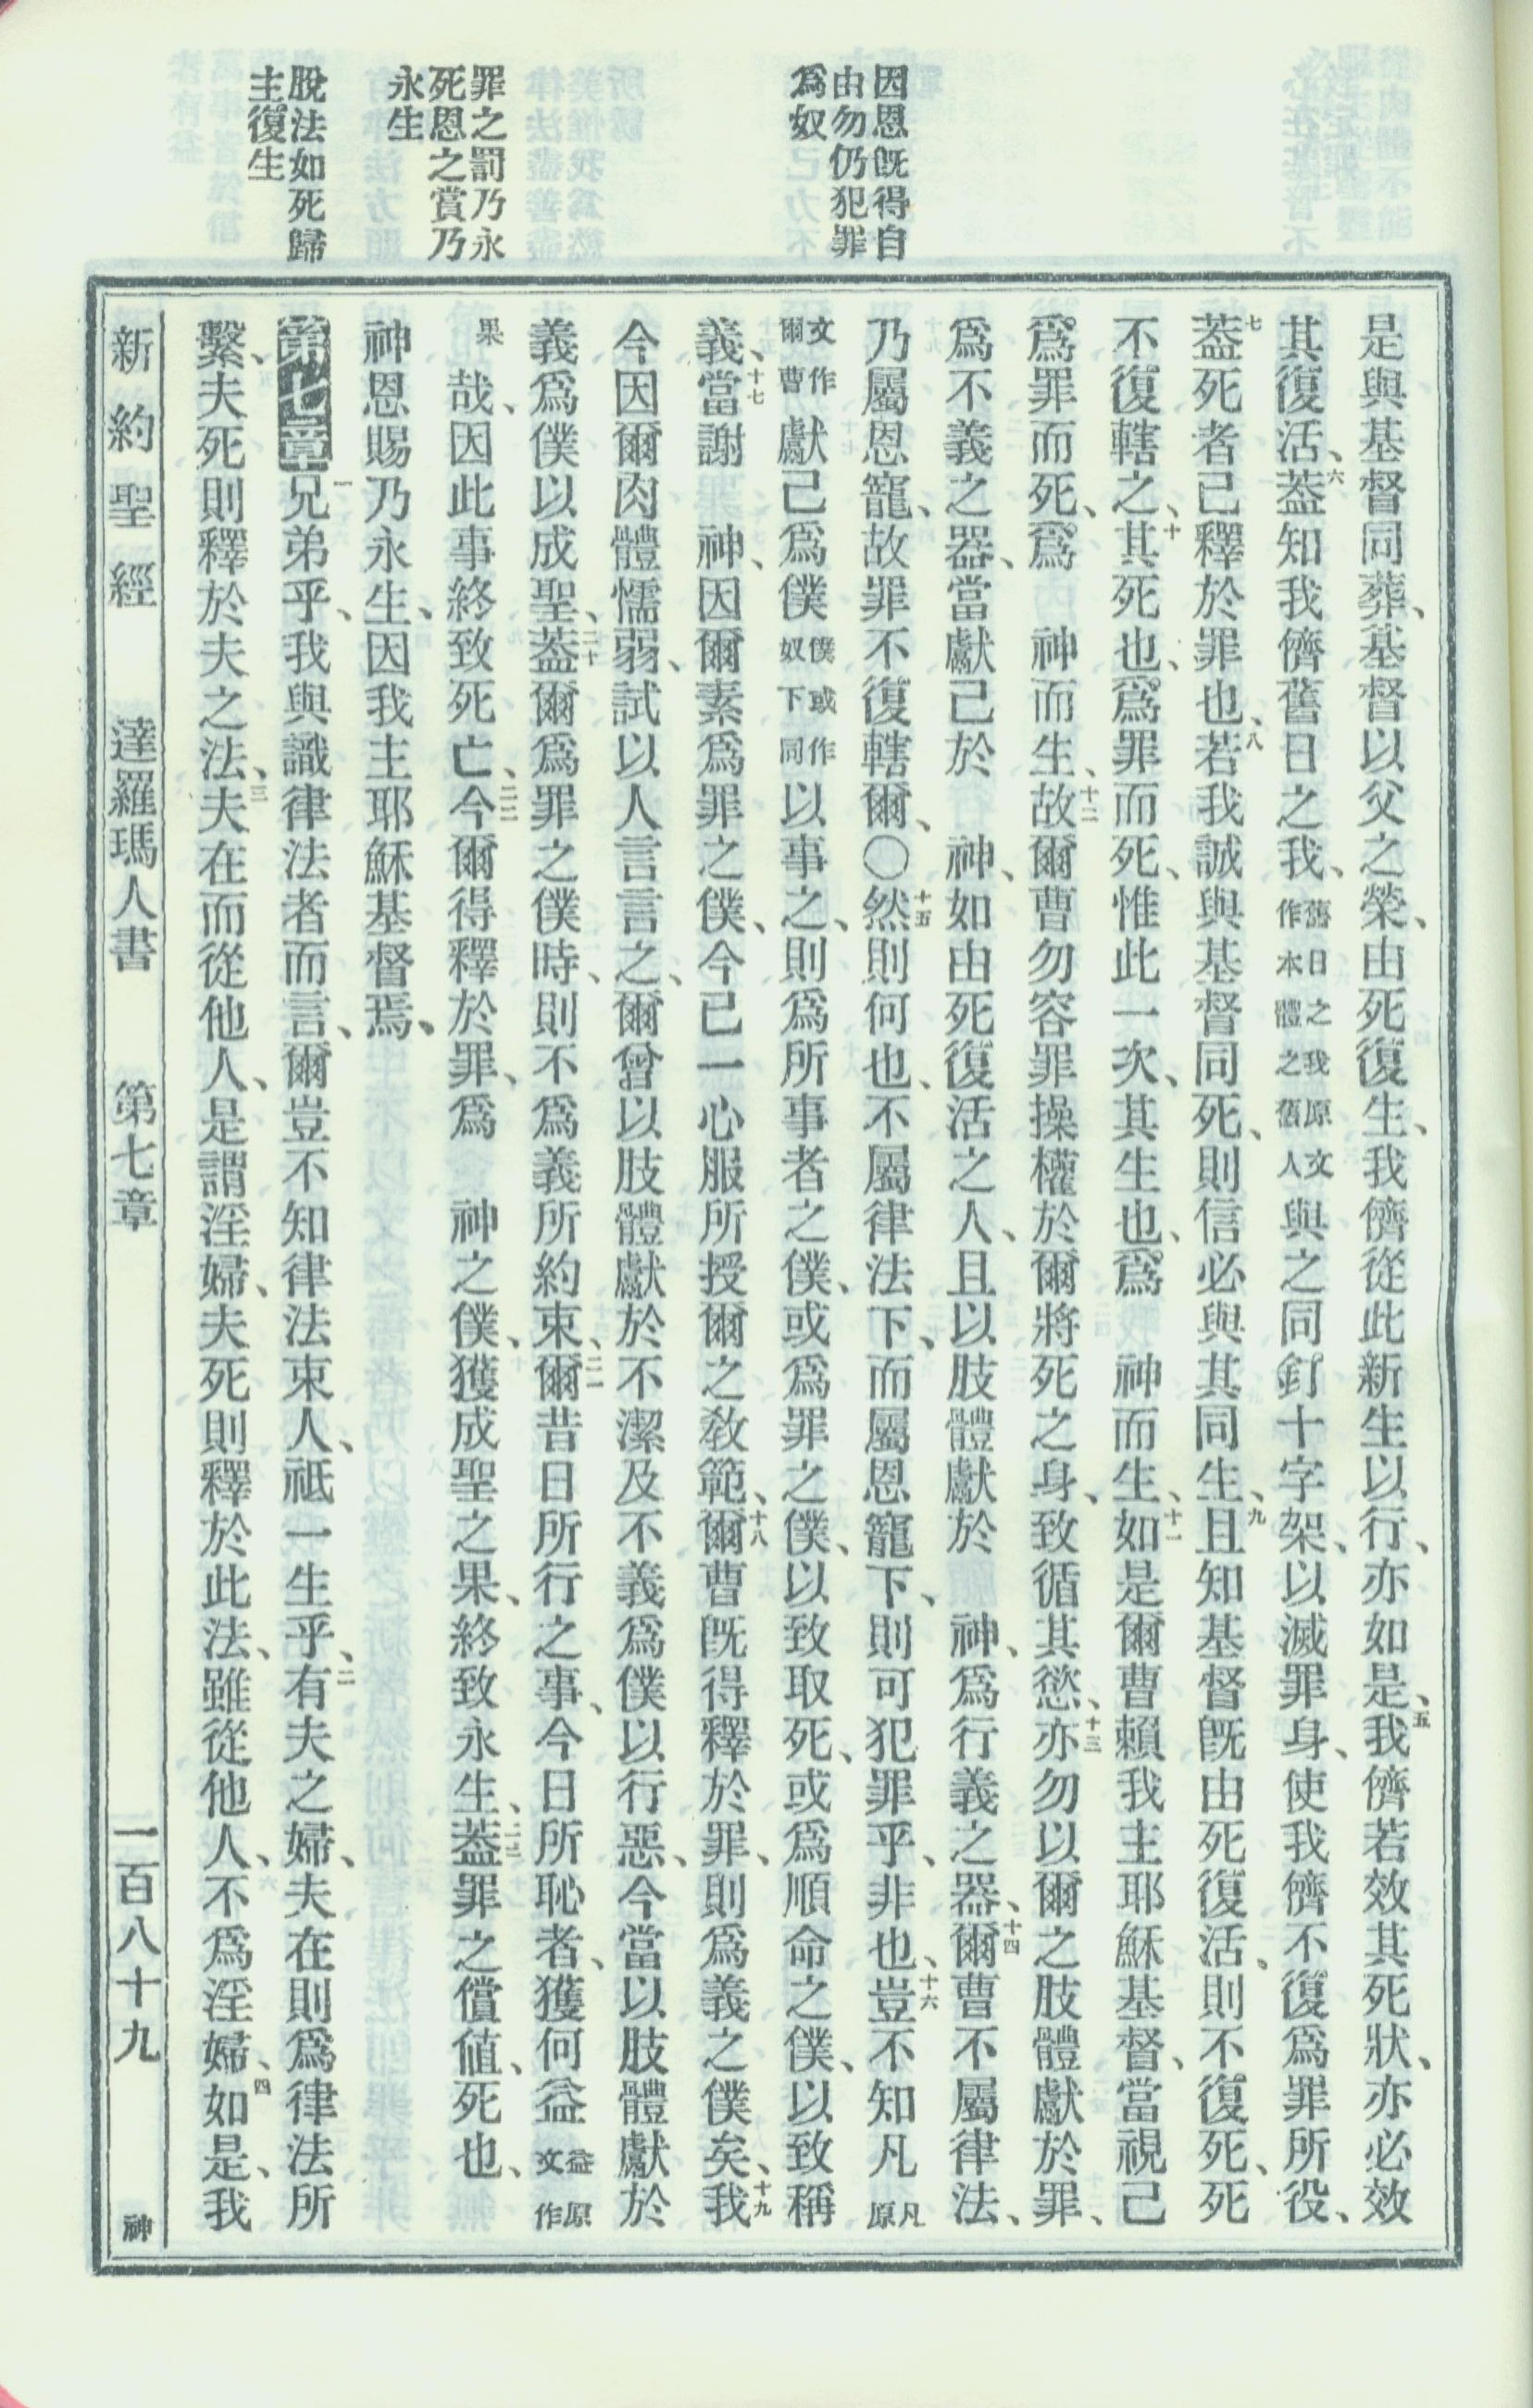 因恩旣得自
由勿仍犯罪
爲奴
罪之罰乃永
死恩之賞乃
永生
脫法如死歸
主復生
是與基督同葬、基督以父之榮、由死復生、我儕從此新生以行、亦如是、五我儕若效其死狀、亦必效
其復活、六葢知我儕舊日之我、舊日之我原文作本體之舊人與之同釘十字架、以滅罪身、使我儕不復爲罪所役、
七葢死者已釋於罪也、八若我誠與基督同死、則信必與其同生、九且知基督旣由死復活、則不復死、死
不復轄之、十其死也、爲罪而死、惟此一次、其生也、爲 神而生、十一如是爾曹賴我主耶穌基督、當視己
爲罪而死、爲 神而生、十二故爾曹勿容罪操權於爾將死之身、致循其慾、十三亦勿以爾之肢體獻於罪、
爲不義之器、當獻己於 神、如由死復活之人、且以肢體獻於 神、爲行義之器、十四爾曹不屬律法、
乃屬恩寵、故罪不復轄爾、〇十五然則何也、不屬律法下、而屬恩寵下、則可犯罪乎、非也、十六豈不知凡凡原
文作爾曹獻己爲僕僕或作奴下同以事之、則爲所事者之僕、或爲罪之僕、以致取死、或爲順命之僕、以致稱
義、十七當謝 神、因爾素爲罪之僕、今已一心服所授爾之敎範、十八爾曹旣得釋於罪、則爲義之僕矣、十九我
今因爾肉體懦弱、試以人言言之、爾曾以肢體獻於不潔及不義爲僕以行惡、今當以肢體獻於
義爲僕以成聖、二十葢爾爲罪之僕時、則不爲義所約束、二一爾昔日所行之事、今日所恥者、獲何益益原文作
果哉、因此事終致死亡、二二今爾得釋於罪、爲 神之僕、獲成聖之果、終致永生、二三葢罪之價値、死也、
神恩賜乃永生、因我主耶穌基督焉、
第七章一兄弟乎、我與識律法者而言、爾豈不知律法束人、祗一生乎、二有夫之婦、夫在則爲律法所
繫、夫死則釋於夫之法、三夫在而從他人、是謂淫婦、夫死則釋於此法、雖從他人、不爲淫婦、四如是、我
新約聖經 達羅瑪人書 第七章 一百八十九 神